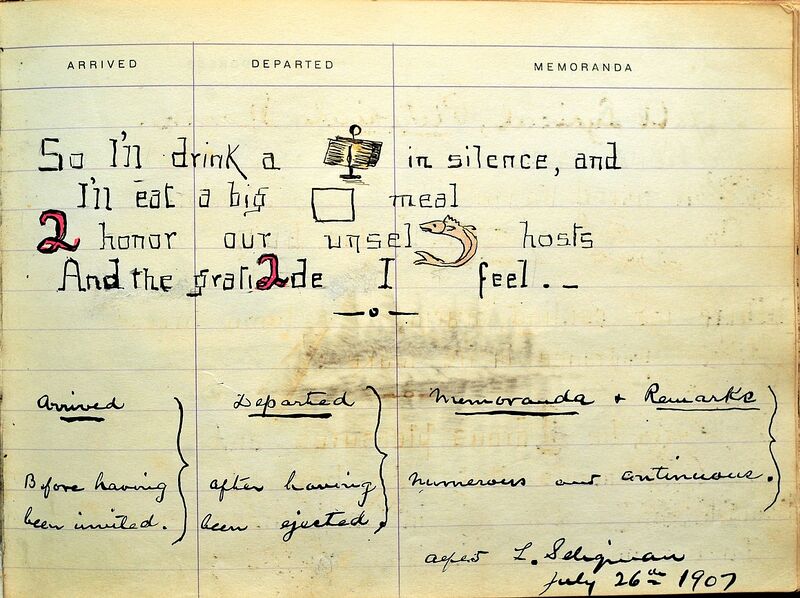 ARRIVED DEPARTED MEMORANDA
So I'll drink a in silence, and
I'll eat a big meal
2 honor our unsel hosts
And the grati2de I feel. _
—o—
Arrived Departed Memoranda + Remarks
Before having after having numerous and continuous.
been invited. been ejected.
L. Seligman
July 26th 1907